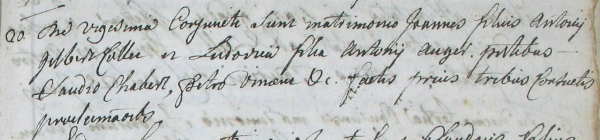 20 Die vigesima Conjuncti sunt matrimonio Joannes filius Antonij
Gilbert Caller et Ludovica filia Antonij Auger. p̃ntibus
Claudio Chabert, Petro Vincent &c. factis prius tribus Consuetis
proclamãoibs